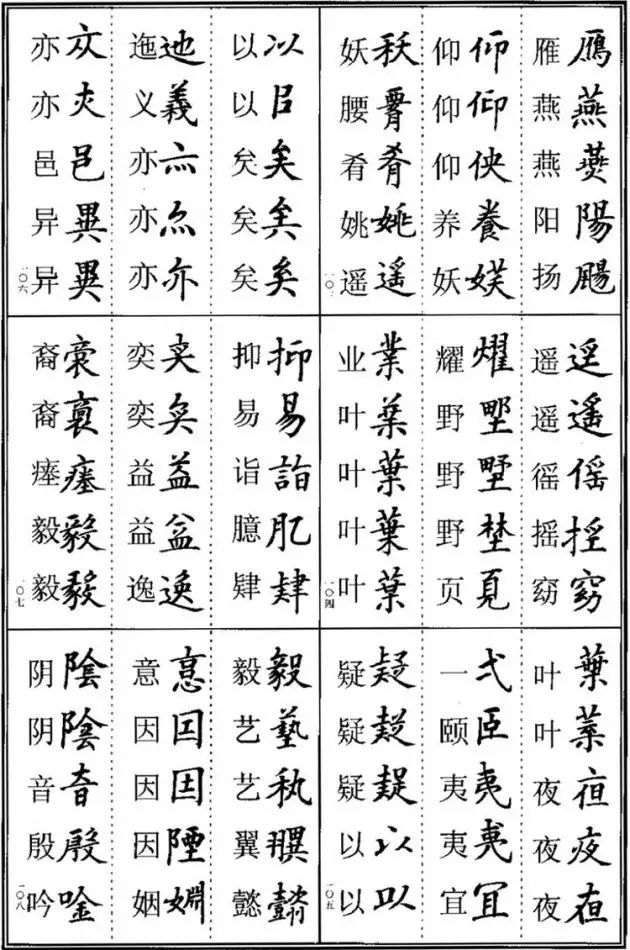 雁鴈 燕燕 燕 阳陽 扬颺
仰仰 仰仰 仰 养養 妖
妖 腰 肴肴 姚姚 遥遥
一〇
遥 遥遥 徭傜 摇 窈窈
耀燿 野墅 野墅 野埜 页
业業 叶葉 叶葉 叶葉 叶葉
一〇四
叶葉 叶 夜 夜夜 夜
一弌 颐𦣞 夷夷 夷 宜冝
疑疑 疑 疑 以以 以以
一〇五
以以 以㠯 矣矣 矣 矣矣
迤迆 义義 亦亦 亦 亦亦
亦 亦 邑邑 异異 异異
一〇六
抑抑 易易 诣詣 臆肊 肄肆
奕 奕 益益 益 逸逸
裔 裔 瘗 毅毅 毅
一〇七
毅毅 艺藝 艺 翼 懿懿
意 因囙 因因 因陻 姻婣
阴陰 阴陰 音音 殷殷 吟唫
一〇八